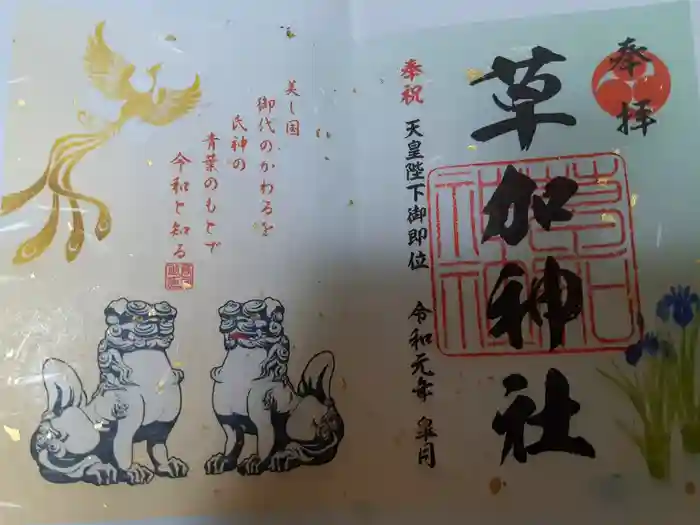 奉拝
草加神社
奉祝 天皇陛下御即位 令和元年 皐月
美し国
御代のかわるを
氏神の
青葉のもとで
令和と知る